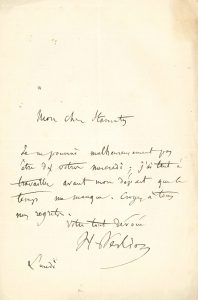 Mon cher
Je ne pourrai malheureusement pas
être des vôtres mercredi ; j'ai tant à
travailler avant mon départ que le
temps me manque. Croyez à tous
mes regrets.
Votre tout dévoué
H. Berlioz
Lundi